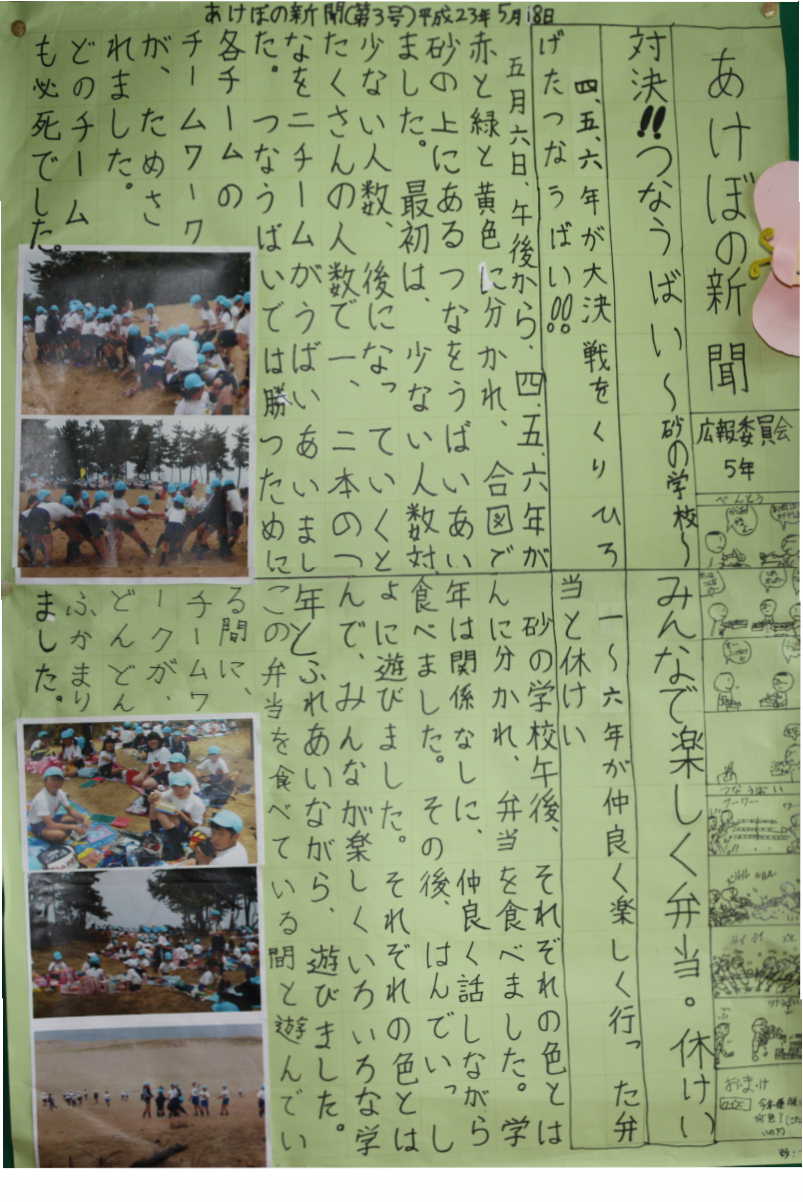 あけぼの新聞(第3号)平成23年5月18日
あけぼの新聞
広報委員会
5年
対決!!つなうばい〜砂の学校〜
四、五、六年が大決戦をくりひろ
げたつなうばい!!
五月六日、午後から、四、五、六年が
赤と緑と黄色に分かれ、合図で
砂の上にあるつなをうばいあい
ました。最初は、少ない人数対
少ない人数、後になっていくと
たくさんの人数で一、二本のつ
なを二チームがうばいあいまし
た。つなうばいでは勝つために
各チームの
チームワーク
が、ためさ
れました。
どのチーム
も必死でした。
みんなで楽しく弁当。休けい
一〜六年が仲良く楽しく行った弁
当と休けい
砂の学校午後、それぞれの色とは
んに分かれ、弁当を食べました。学
年は関係なしに、仲良く話しながら
食べました。その後、はんでいっし
ょに遊びました。それぞれの色とは
んで、みんなが楽しくいろいろな学
年とふれあいながら、遊びました。
この弁当を食べている間と遊んでい
る間に、
チームワ
ークが、
どんどん
ふかまり
ました。
べんとう
つなうばい
おまけ